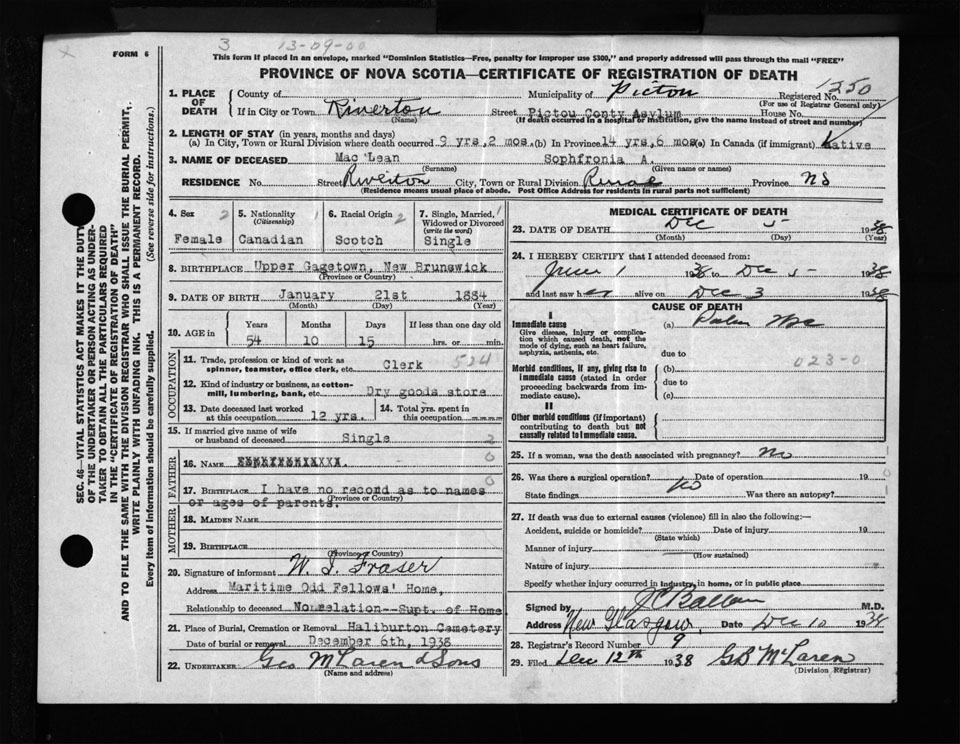 3 13-09-00
FORM 6
This form if placed in an envelope, marked "Dominion Statistics—Free, penalty for improper use $300," and properly addressed will pass through the mail "FREE"
PROVINCE OF NOVA SCOTIA—CERTIFICATE OF REGISTRATION OF DEATH
SEC. 46—VITAL STATISTICS ACT MAKES IT THE DUTY
OF THE UNDERTAKER OR PERSON ACTING AS UNDER-
TAKER TO OBTAIN ALL THE PARTICULARS REQUIRED
IN THE "CERTIFICATE OF REGISTRATION OF DEATH"
AND TO FILE THE SAME WITH THE DIVISION REGISTRAR WHO SHALL ISSUE THE BURIAL PERMIT.
WRITE PLAINLY WITH UNFADING INK. THIS IS A PERMANENT RECORD.
Every item of information should be carefully supplied. (See reverse side for instructions.)
1. PLACE OF DEATH County of Municipality of Pictou Registered No. 1250
(For use of Registrar General only)
If in City or Town Riverton Street Pictou Conty Asylum House No.
(Name) (If death occurred in a hospital or institution, give the name instead of street and number)
2. LENGTH OF STAY (in years, months and days)
(a) In City, Town or Rural Division where death occurred 9 yrs, 2 mos. (b) In Province 14 yrs, 6 mos (c) In Canada (if immigrant) Native
3. NAME OF DECEASED Mac'Lean Sophfronia A.
(Surname) (Given name or names)
RESIDENCE No. Street Riverton City, Town or Rural Division Rural Province NS
(Residence means usual place of abode. Post Office Address for residents in rural parts not sufficient)
4. Sex 2 5. Nationality 1 6. Racial Origin 2 7. Single, Married, 1
(Citizenship) Widowed or Divorced
(write the word)
Female Canadian Scotch Single
8. BIRTHPLACE Upper Gagetown, New Brunswick
(Province or Country)
9. DATE OF BIRTH January 21st 1884
(Month) (Day) (Year)
10. AGE in Years Months Days If less than one day old
54 10 15 hrs. or min.
OCCUPATION
11. Trade, profession or kind of work as
spinner, teamster, office clerk, etc. Clerk 524
12. Kind of industry or business, as cotton-
mill, lumbering, bank, etc. Dry goods store
13. Date deceased last worked
at this occupation 12 yrs.
14. Total yrs. spent in
this occupation
15. If married give name of wife
or husband of deceased Single 2
FATHER
16. NAME 0
17. BIRTHPLACE I have no record as to names 0
(Province or Country)
or ages of parents.
MOTHER
18. MAIDEN NAME
19. BIRTHPLACE
(Province or Country)
20. Signature of informant W. J. Fraser
Address Maritime Odd Fellows' Home,
Relationship to deceased Norelation--Supt. of Home
21. Place of Burial, Cremation or Removal Haliburton Cemetery
Date of burial or removal December 6th, 1938
22. UNDERTAKER Geo McLaren & Sons
(Name and address)
MEDICAL CERTIFICATE OF DEATH
23. DATE OF DEATH Dec 5 1938
(Month) (Day) (Year)
24. I HEREBY CERTIFY that I attended deceased from:
June 1 1938 to Dec 5 1938
and last saw her alive on Dec 3 1938
CAUSE OF DEATH
I
Immediate cause (a)
Give disease, injury or complica-
tion which caused death, not the
mode of dying, such as heart failure,
asphyxia, asthenia, etc.
due to
023-0
Morbid conditions, if any, giving rise to
immediate cause (stated in order
proceeding backwards from im-
mediate cause).
(b)
due to
(c)
II
Other morbid conditions (if important)
contributing to death but not
causally related to immediate cause.
25. If a woman, was the death associated with pregnancy? No 1
26. Was there a surgical operation? No Date of operation 19 0
State findings Was there an autopsy? 0
27. If death was due to external causes (violence) fill in also the following:—
Accident, suicide or homicide? Date of injury 19
(State which)
Manner of injury
(How sustained)
Nature of injury
Specify whether injury occurred in industry, in home, or in public place
Signed by M.D.
Address New Glasgow, Date Dec 10 1938
28. Registrar's Record Number 9
29. Filed Dec 12th 1938 GB McLaren
(Division Registrar)